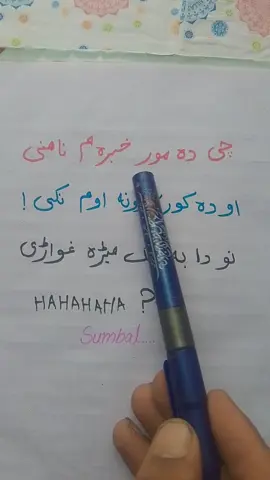 چی ده مور خبره م نامنی
او ده کور اوم نکی !
نو دا به میړه غواړی
HAHAHAHA ?
Sumbal....